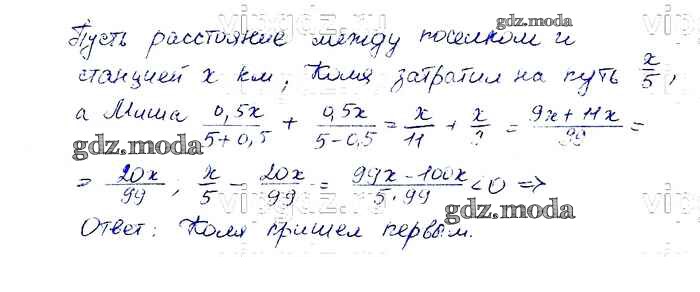 Пусть расстояние между поселком и
станцией x км, Коля затратил на путь x/5,
а Миша 0,5x/(5+0,5) + 0,5x/(5-0,5) = x/11 + x/9 = (9x+11x)/99 =
= 20x/99 ; x/5 - 20x/99 = (99x-100x)/(5·99) < 0 =>
Ответ: Коля пришел первым.
gdz.moda
gdz.moda
gdz.moda
gdz.moda